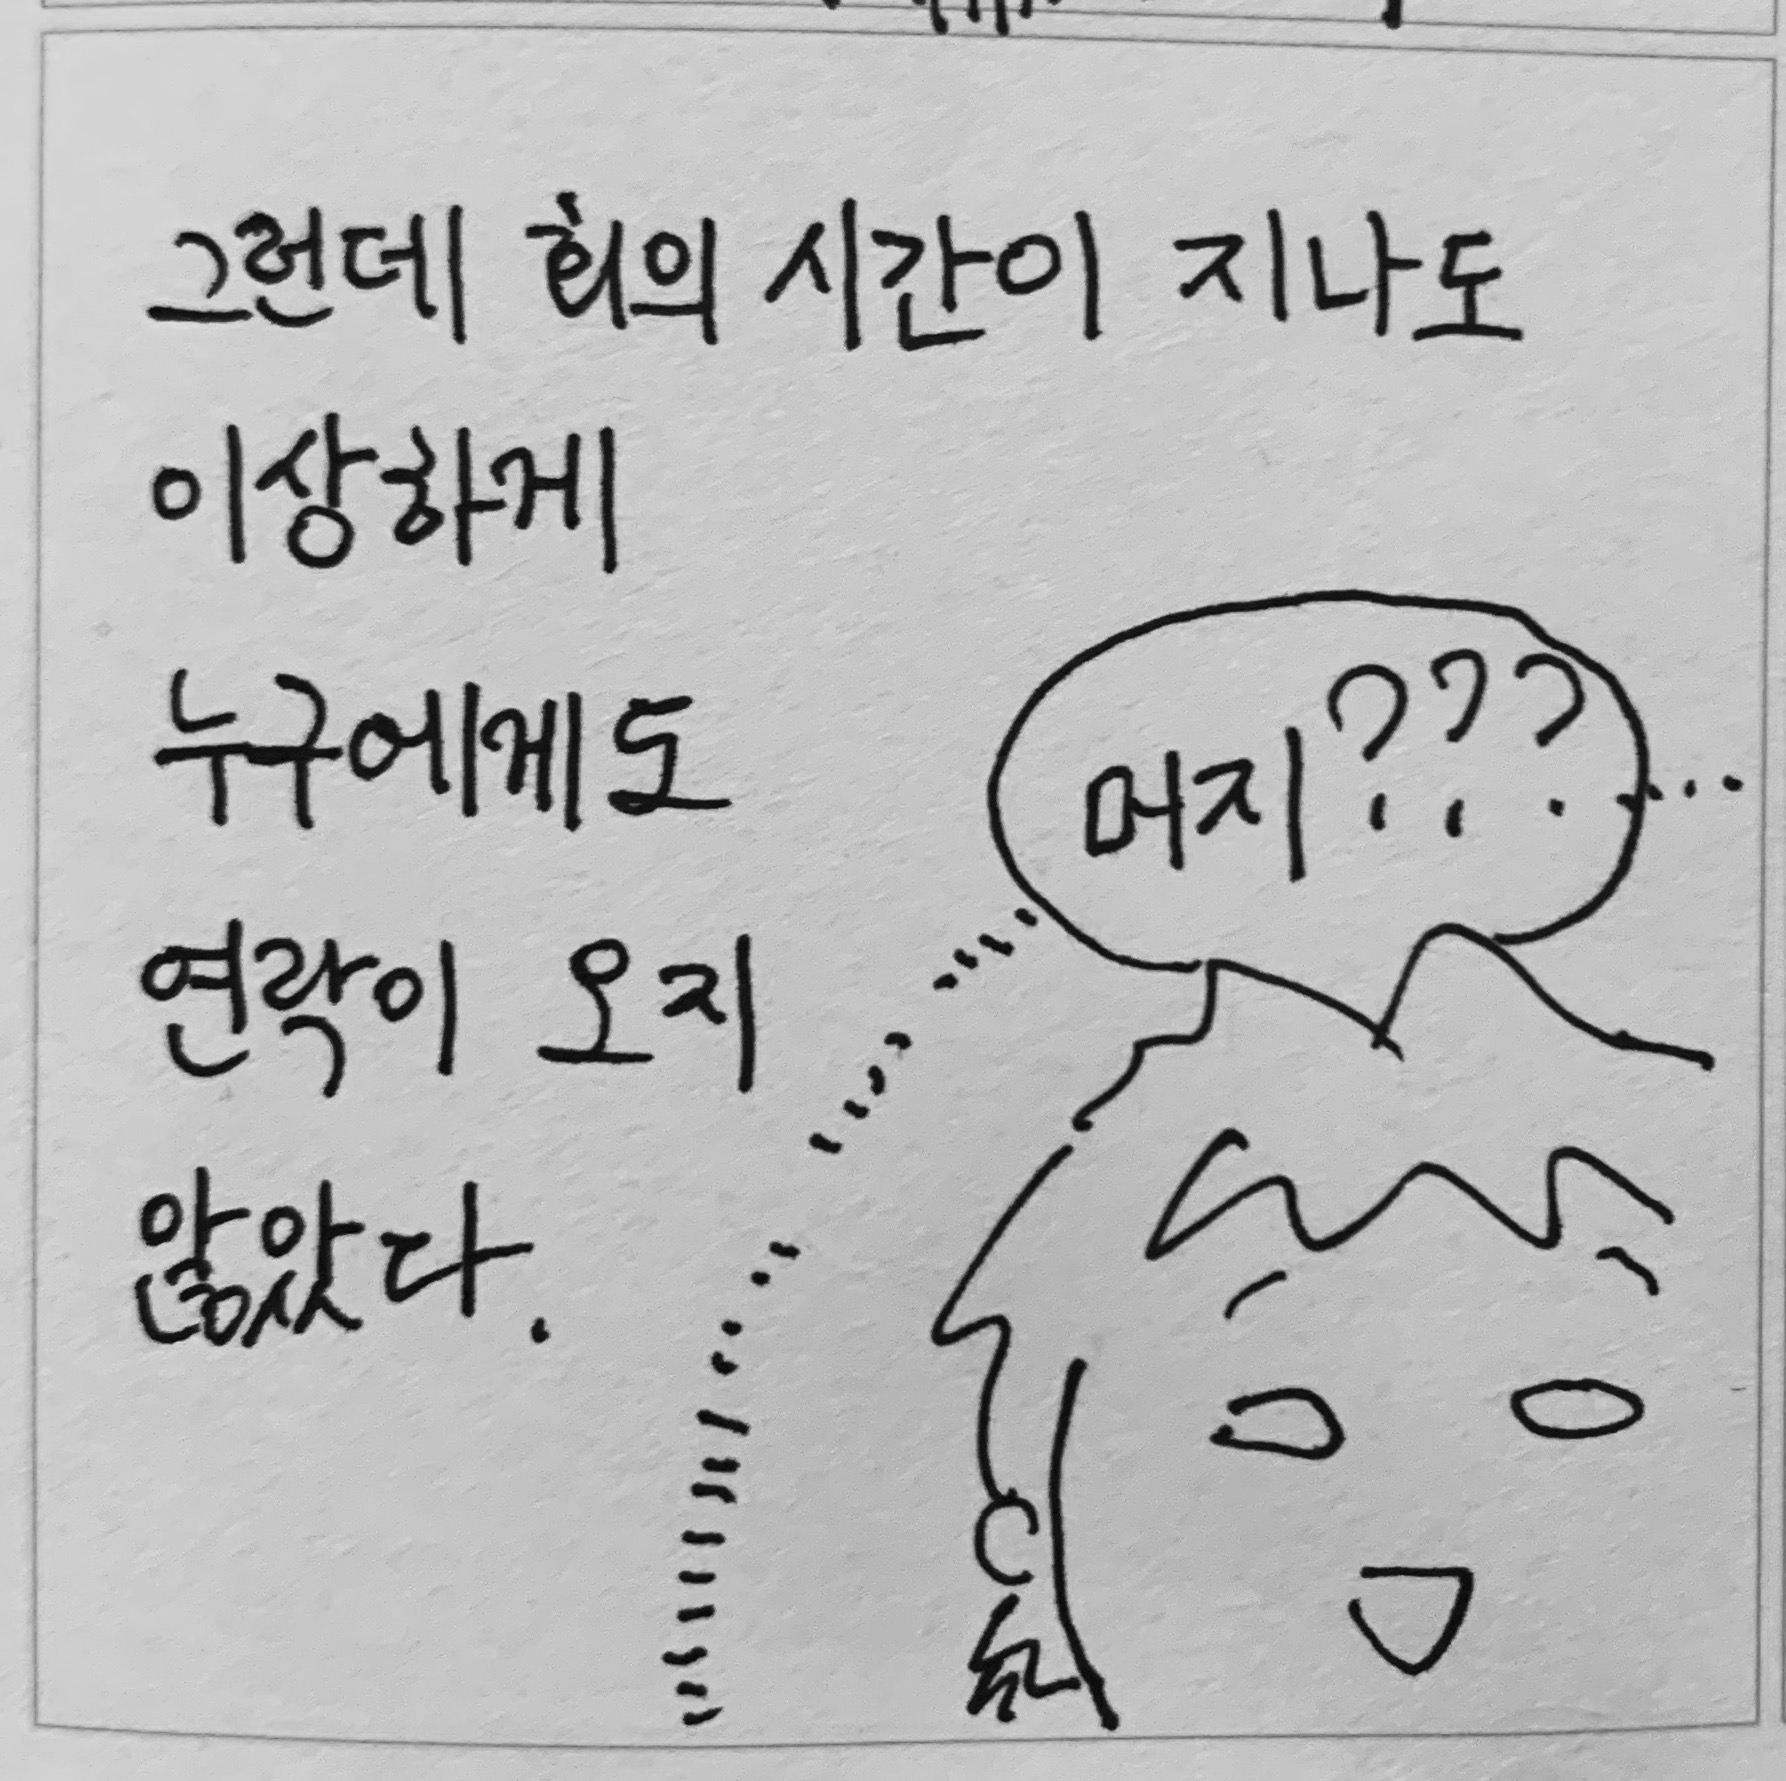 그런데 회의 시간이 지나도
이상하게
누구에게도
연락이 오지
않았다.
머지???....